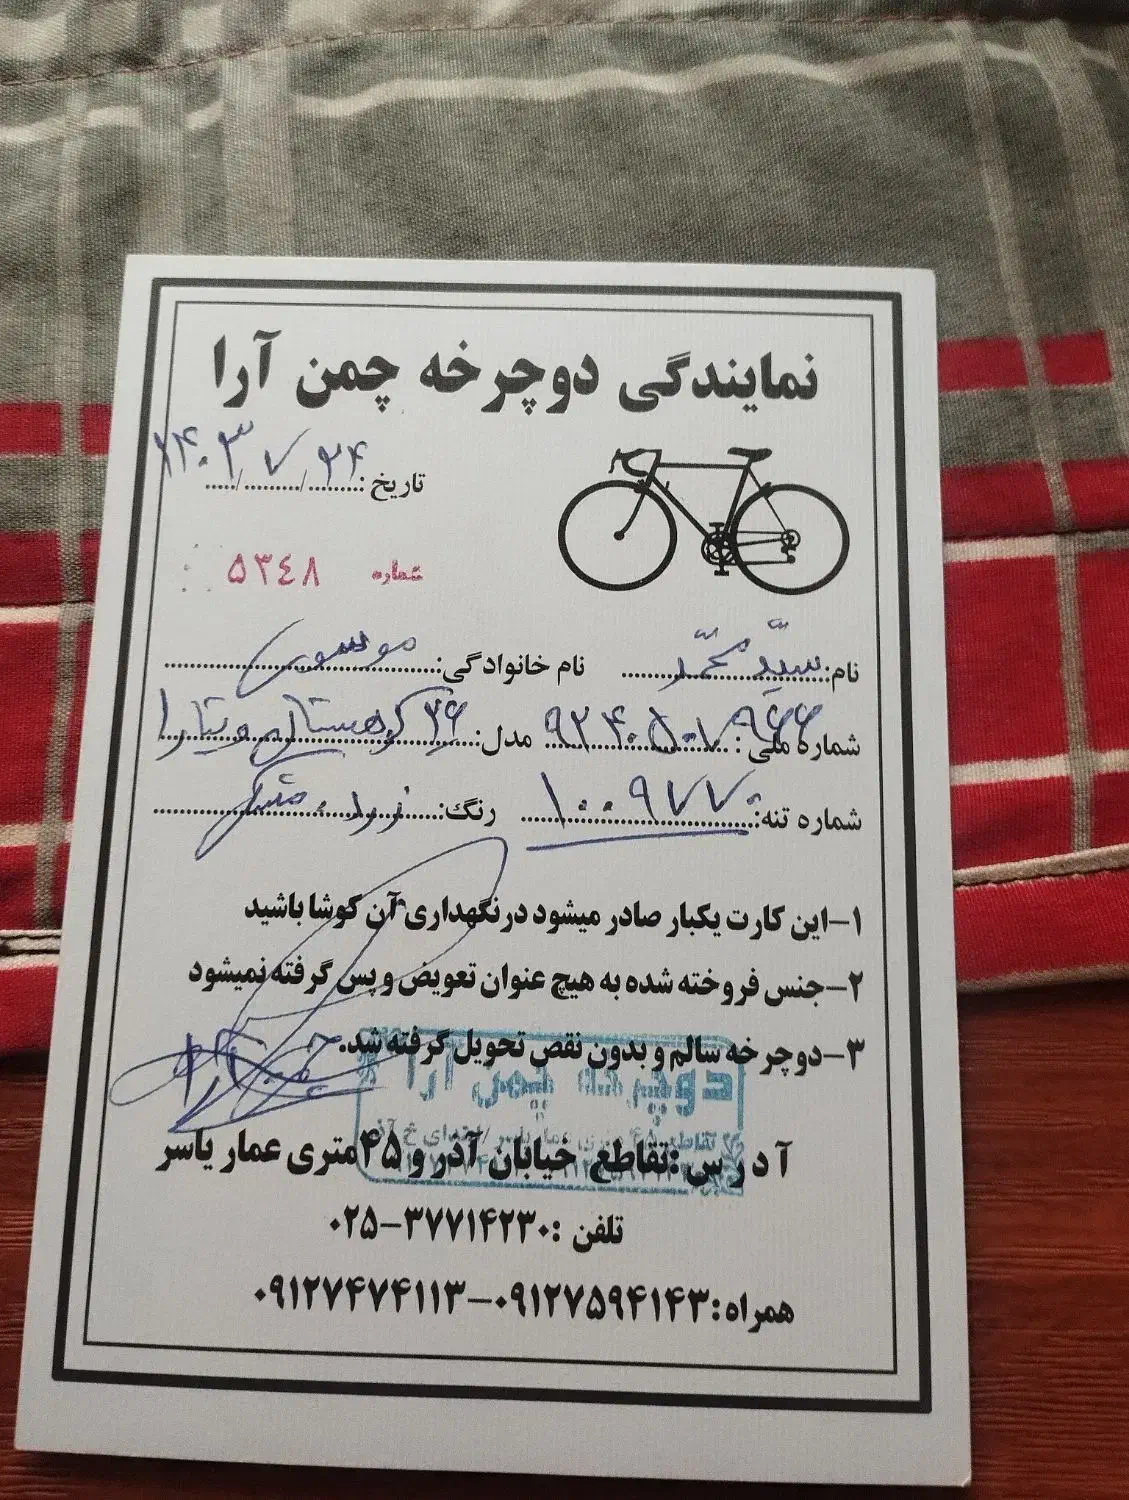 نمایندگی دوچرخه چمن آرا
تاریخ: ۲۴/۷/۱۴۰۳
شماره ۵۳۴۸
نام: سیّد محمّد نام خانوادگی: موسوی
شماره ملی: مدل: ۲۶ کوهستان ویتارا
شماره تنه: ۱۰۰۹۷۷ رنگ: زرد، مشکی
۱-این کارت یکبار صادر میشود درنگهداری آن کوشا باشید
۲-جنس فروخته شده به هیچ عنوان تعویض و پس گرفته نمیشود
۳-دوچرخه سالم و بدون نقص تحویل گرفته شد.
دوچرخه چمن آرا
آدرس: تقاطع خیابان آذر و ۴۵متری عمار یاسر
تلفن: ۰۲۵-۳۷۷۱۴۲۳۰
همراه: ۰۹۱۲۷۵۹۴۱۴۳-۰۹۱۲۷۴۷۴۱۱۳